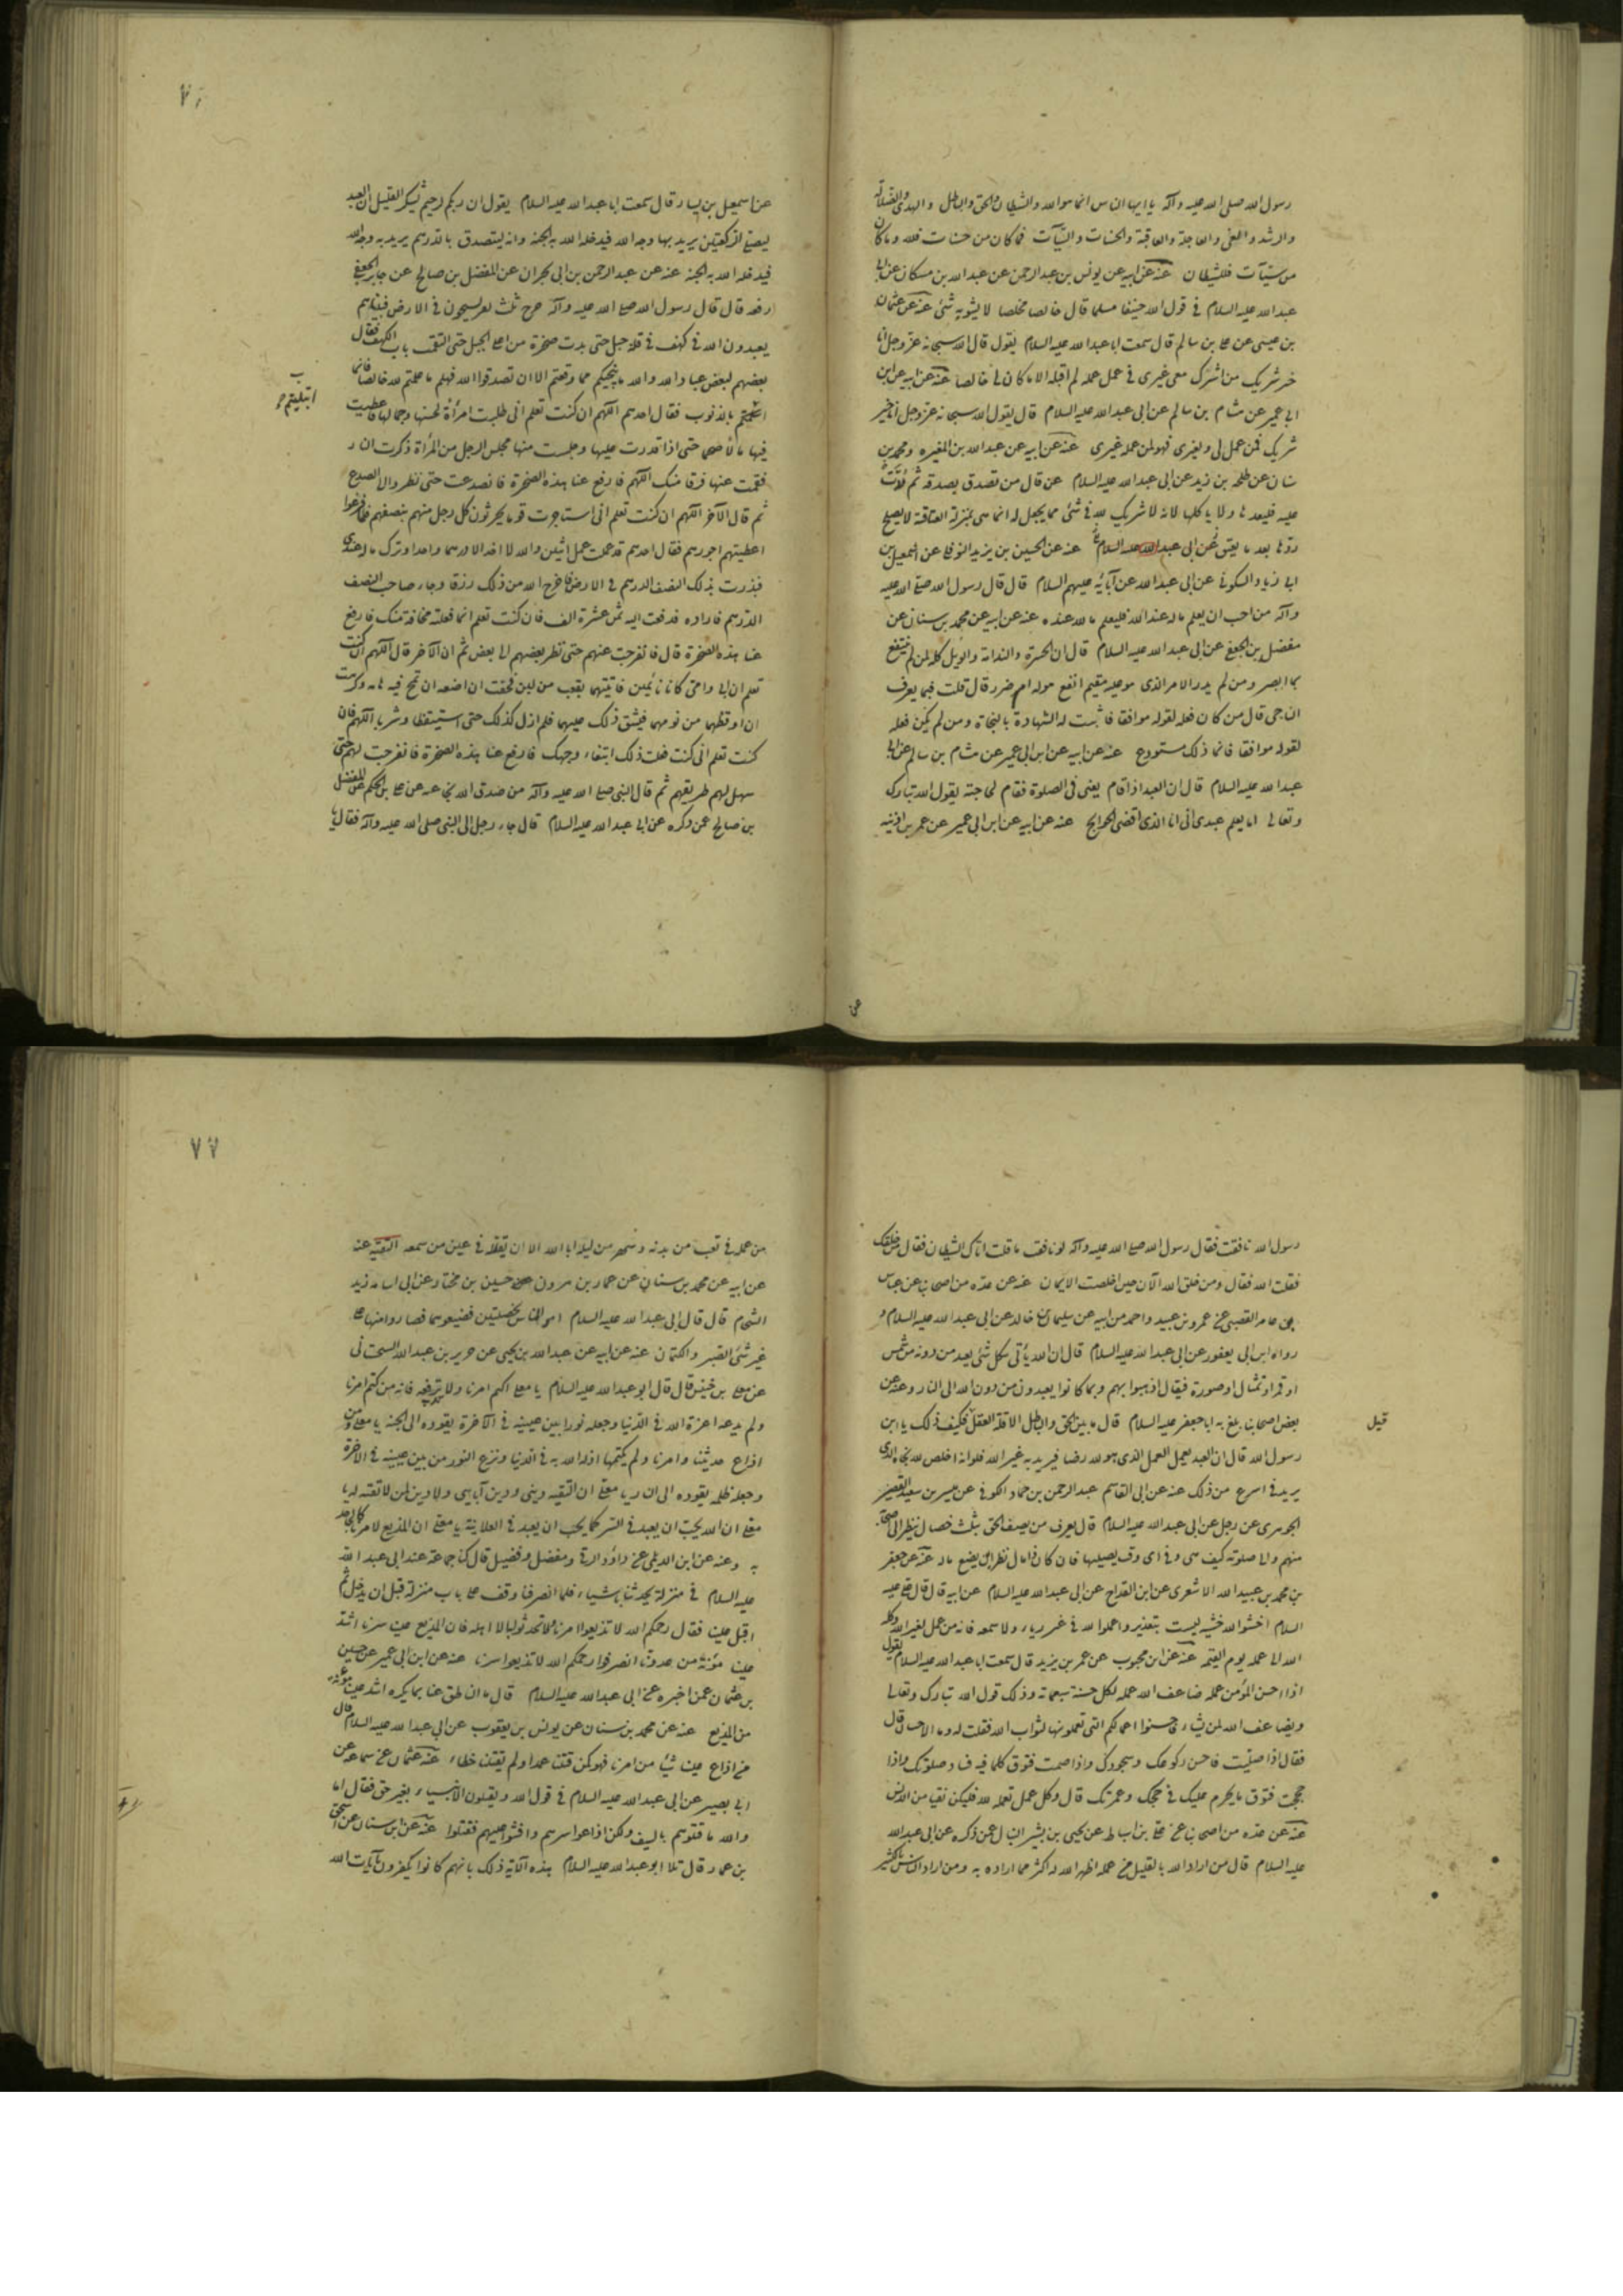 رسول الله صلى الله عليه وآله يا ايها الناس انما هو الله والشيطان والحق والباطل والهدى والضلالة
والرشد والغى والعاجلة والعاقبة والحسنات والسيآت فما كان من حسنات فلله وما كان
من سيئآت فللشيطان عنه عن ابيه عن يونس بن عبد الرحمن عن عبد الله بن مسكان عن ابى
عبد الله عليه السلام فى قول الله حنيفا مسلما قال خالصا مخلصا لا يشوبه شئ عنه عن عثمان
بن عيسى عن على بن سالم قال سمعت ابا عبد الله عليه السلام يقول قال الله سبحانه عز وجل انا
خير شريك من اشرك معى غيرى فى عمل عمله لم اقبله الا ما كان لى خالصا عنه عن ابيه عن ابن
ابى عمير عن هشام بن سالم عن ابى عبد الله عليه السلام قال يقول الله سبحانه عز وجل انا خير
شريك فمن عمل لى ولغيرى فهو لمن عمله غيرى عنه عن ابيه عن عبد الله بن المغيره ومحمد بن
سنان عن طلحه بن زيد عن ابى عبد الله عليه السلام عن قال من تصدق بصدقه ثم ردت
عليه فليعدها ولا ياكلها لانه لا شريك لله فى شئ مما يجعل له انما هى بمنزلة العتاقة لا يصلح
ردها بعد ما يعتق عن ابى عبد الله عليه السلام عنه عن الحسين بن يزيد النوفلى عن اسمعيل بن
ابى زياد السكونى عن ابى عبد الله عن آبائه عليهم السلام قال قال رسول الله صلى الله عليه
وآله من احب ان يعلم ماله عند الله فليعلم ما لله عنده عنه عن ابيه عن محمد بن سنان عن
مفضل بن الجعفى عن ابى عبد الله عليه السلام قال ان الحسرة والندامة والويل كله لمن لم ينتفع
بما ابصر ومن لم يدر الامر الذى هو عليه مقيم انفع هو له ام ضرر قال قلت فبما يعرف
الناجى قال من كان فعله لقوله موافقا فاثبت له الشهادة بالنجاة ومن لم يكن فعله
لقوله موافقا فانما ذلك مستودع عنه عن ابيه عن ابن ابى عمير عن هشام بن سالم عن ابى
عبد الله عليه السلام قال ان العبد اذا قام يعنى فى الصلوة فقام لحاجته يقول الله تبارك
وتعالى اما يعلم عبدى انى انا الذى اقضى الحوايج عنه عن ابيه عن ابن ابى عمير عن عمر بن اذينه
عن
عن اسمعيل بن يسار قال سمعت ابا عبد الله عليه السلام يقول ان ربكم لرحيم يشكر القليل ان العبد
ليصلى الركعتين يريد بها وجه الله فيدخله الله به الجنة وانه ليتصدق بالدرهم يريد به وجه الله
فيدخله الله به الجنه عنه عن عبد الرحمن بن ابى نجران عن المفضل بن صالح عن جابر الجعفى
رفعه قال قال رسول الله صلى الله عليه وآله خرج ثلث نفر يسيحون فى الارض فبيناهم
يعبدون الله فى كهف فى قلة جبل حتى بدت صخرة من اعلى الجبل حتى التقمت باب الكهف فقال
بعضهم لبعض عباد الله والله ما ينجيكم مما وقعتم الا ان تصدقوا الله فهلم ما عملتم لله خالصا فانما
ابتليتم
بالذنوب فقال احدهم اللهم ان كنت تعلم انى طلبت امرأة لحسنها وجمالها فاعطيت
فيها مالا ضخما حتى اذا قدرت عليها وجلست منها مجلس الرجل من المرأة ذكرت النار
فقمت عنها فرقا منك اللهم فارفع عنا هذه الصخرة فانصدعت حتى نظروا الى الصدع
ثم قال الآخر اللهم ان كنت تعلم انى استاجرت قوما يحرثون كل رجل منهم بنصف درهم فلما فرغوا
اعطيتهم اجورهم فقال احدهم قد عملت عمل اثنين والله لا اخذ الا درهما واحدا وترك ماله عندى
فبذرت بذلك النصف الدرهم فى الارض فاخرج الله من ذلك رزقا وجاء صاحب النصف
الدرهم فاراده فدفعت اليه ثمن عشرة الف فان كنت تعلم انما فعلته مخافة منك فارفع
عنا هذه الصخرة قال فانفرجت عنهم حتى نظر بعضهم الى بعض ثم ان الآخر قال اللهم ان كنت
تعلم ان ابى وامى كانا نائمين فاتيتهما بقعب من لبن فخفت ان اضعه ان تمج فيه هامة وكرهت
ان اوقظهما من نومهما فيشق ذلك عليهما فلم ازل كذلك حتى استيقظا وشربا اللهم فان
كنت تعلم انى كنت فعلت ذلك ابتغاء وجهك فارفع عنا هذه الصخرة فانفرجت لهم حتى
سهل لهم طريقهم ثم قال النبى صلى الله عليه وآله من صدق الله نجا عنه عن على بن الحكم عن المفضل
بن صالح عمن ذكره عن ابى عبد الله عليه السلام قال جاء رجل الى النبى صلى الله عليه وآله فقال يا
رسول الله نافقت فقال رسول الله صلى الله عليه وآله لو نافقت ما قلت اتاك الشيطان فقال من خلقك
فقلت الله فقال ومن خلق الله الآن حين اخلصت الايمان عنه عن عده من اصحابنا عن عباس
بن عامر القصبى عن عمرو بن عبيد واحمد من ابيه عن سليمان بن خالد عن ابى عبد الله عليه السلام و
رواه ابن ابى يعفور عن ابى عبد الله عليه السلام قال ان الله يأتى بكل شئ يعبد من دونه من شمس
او قمر او تمثال او صورة فيقال اذهبوا بهم وبما كانوا يعبدون من دون الله الى النار وعنه عن
بعض اصحابنا بلغ به ابا جعفر عليه السلام قال ما بين الحق والباطل الا قلة العقل قيل فكيف ذلك يا ابن
رسول الله قال ان العبد يعمل العمل الذى هو لله رضا فيريد به غير الله فلو انه اخلص لله لجاءه الذى
يريد فى اسرع من ذلك عنه عن ابى القاسم عبد الرحمن بن حماد الكوفى عن ميسر بن سعيد القصير
الجوهرى عن رجل عن ابى عبد الله عليه السلام قال يعرف من يصف الحق بثلث خصال ينظر الى اصحابه
منهم والى صلوته كيف هى وفى اى وقت يصليها فان كان ذا مال نظر اين يضع ماله عنه عن جعفر
بن محمد بن عبيد الله الاشعرى عن ابن القداح عن ابى عبد الله عليه السلام عن ابيه قال قال على عليه
السلام اخشوا الله خشية ليست بتعذير واعملوا لله فى غير رياء ولا سمعه فانه من عمل لغير الله وكله
الله الى عمله يوم القيمه عنه عن ابن محبوب عن عمر بن يزيد قال سمعت ابا عبد الله عليه السلام يقول
اذا احسن المؤمن عمله ضاعف الله عمله لكل حسنة سبعمائة وذلك قول الله تبارك وتعالى
ويضاعف الله لمن يشاء فاحسنوا اعمالكم التى تعملونها لثواب الله فقلت له وما الاحسان قال
فقال اذا صليت فاحسن ركوعك وسجودك واذا صمت فتوق كلما فيه فساد صلوتك واذا
حججت فتوق ما يحرم عليك فى حجك وعمرتك قال وكل عمل تعمله لله فليكن نقيا من الدنس
عنه عن عده من اصحابنا عن على بن اسباط عن يحيى بن بشير النبال عمن ذكره عن ابى عبد الله
عليه السلام قال من اراد الله بالقليل من عمله اظهر الله له اكثر مما اراده به ومن اراد الناس بالكثير
٧٧
من عمله فى تعب من بدنه وسهر من ليله ابا الله الا ان يقلله فى عين من سمعه التقيه عنه
عن ابيه عن محمد بن سنان عن عمار بن مروان عن حسين بن مختار عن ابى اسامه زيد
الشحام قال قال ابى عبد الله عليه السلام امر الناس بخصلتين فضيعوهما فصاروا منهما على
غير شئ الصبر والكتمان عنه عن ابيه عن عبد الله بن يحيى عن حريز بن عبد الله السجستانى
عن معلى بن خنيس قال قال ابو عبد الله عليه السلام يا معلى اكتم امرنا ولا تذعه فانه من كتم امرنا
ولم يذعه اعزه الله فى الدنيا وجعله نورا بين عينيه فى الآخرة يقوده الى الجنه يا معلى ومن
اذاع حديثنا وامرنا ولم يكتمها اذله الله به فى الدنيا ونزع النور من بين عينيه فى الآخرة
وجعله ظلمه يقوده الى النار يا معلى ان التقيه دينى ودين آبائى ولا دين لمن لا تقيه له يا
معلى ان الله يحب ان يعبد فى السر كما يحب ان يعبد فى العلانية يا معلى ان المذيع لامرنا كالجاحد
به وعنه عن ابن الديلمى عن داود الرقى ومفضل وفضيل قال كنا جماعة عند ابى عبد الله
عليه السلام فى منزله يحدثنا باشياء فلما انصرفنا وقف على باب منزله قبل ان يدخل ثم
اقبل علينا فقال رحمكم الله لا تذيعوا امرنا ولا تحدثوا به الا اهله فان المذيع علينا سرنا اشد
علينا مؤنة من عدونا انصرفوا رحمكم الله لا تذيعوا سرنا عنه عن ابن ابى عمير عن حسين
بن عثمان عمن اخبره عن ابى عبد الله عليه السلام قال ما الناطق عنا بما يكره اشد علينا مؤنة
من المذيع عنه عن محمد بن سنان عن يونس بن يعقوب عن ابى عبد الله عليه السلام قال
من اذاع علينا شيئا من امرنا فهو كمن قتلنا عمدا ولم يقتلنا خطاء عنه عن عثمان عن سماعه عن
ابى بصير عن ابى عبد الله عليه السلام فى قول الله ويقتلون الانبياء بغير حق فقال اما
والله ما قتلوهم بالسيف ولكن اذاعوا سرهم وافشوا عليهم فقتلوا عنه عن ابن سنان عن اسحق
بن عمار قال تلا ابو عبد الله عليه السلام هذه الآية ذلك بانهم كانوا يكفرون بآيات الله